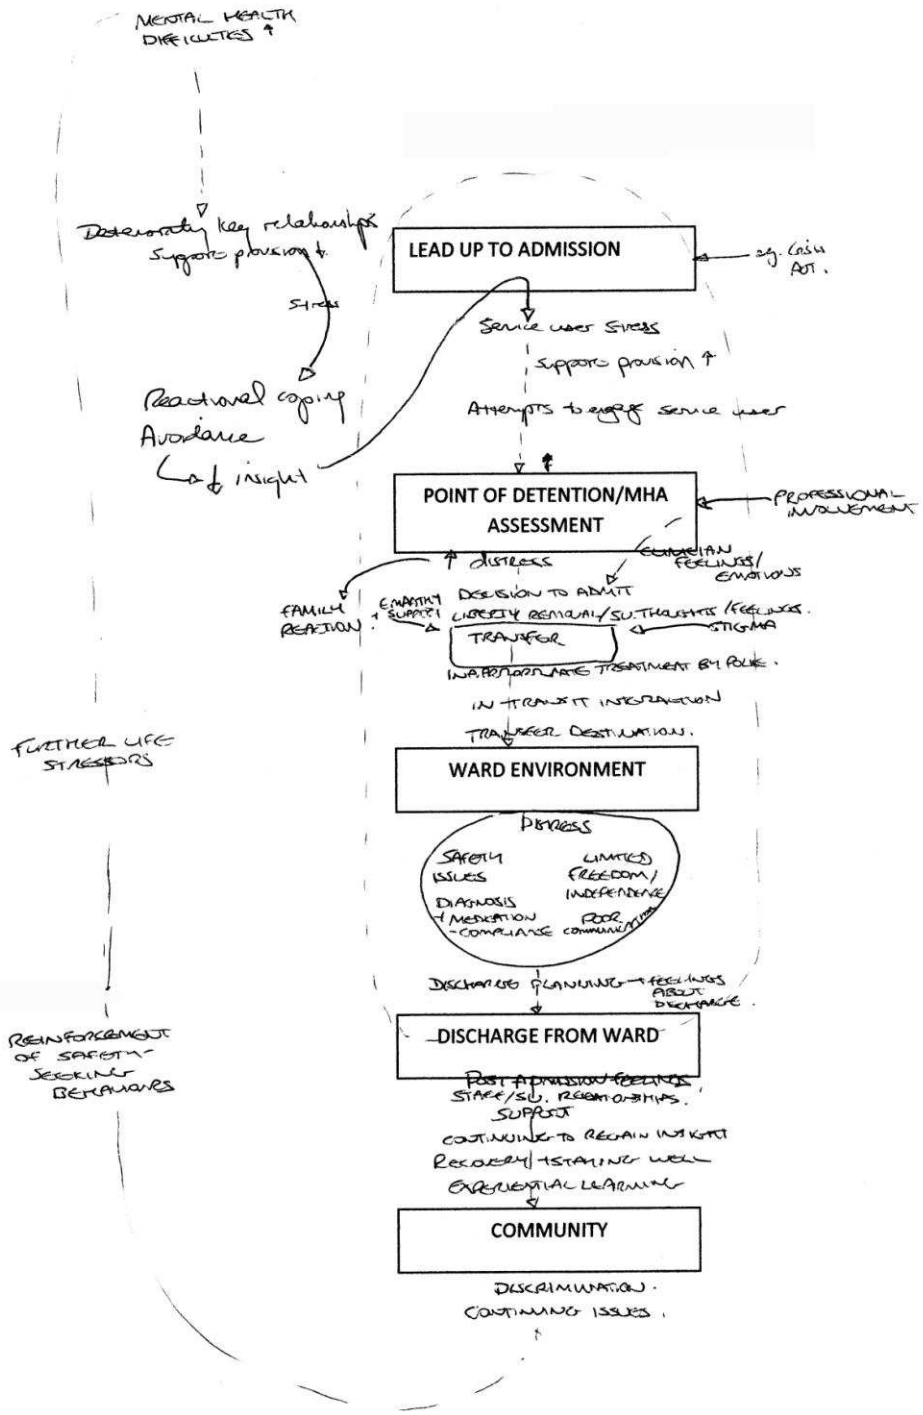 MENTAL HEALTH
DIFFICULTES ↑
Deteriorating key relationships
Support provision ↓
Stress
Reactional coping
Avoidance
↓ insight
LEAD UP TO ADMISSION
eg.
Service user stress
Support provision ↑
Attempts to engage service user
POINT OF DETENTION/MHA
ASSESSMENT
PROFESSIONAL
INVOLVEMENT
↑ DISTRESS
CLINICIAN
FEELINGS/
EMOTIONS
FAMILY
REACTION
+ EMPATHY
SUPPORT
DECISION TO ADMIT
LIBERTY REMOVAL/SU. THOUGHTS/FEELINGS.
STIGMA
TRANSFER
INAPPROPRIATE TREATMENT BY POLICE.
IN TRANSIT INTERACTION
TRANSFER DESTINATION.
WARD ENVIRONMENT
FURTHER LIFE
STRESSORS
DISTRESS
SAFETY
ISSUES
LIMITED
FREEDOM/
INDEPENDENCE
DIAGNOSIS
+ MEDICATION
- COMPLIANCE
POOR
COMMUNICATION
DISCHARGE PLANNING + FEELINGS
ABOUT
DISCHARGE.
DISCHARGE FROM WARD
REINFORCEMENT
OF SAFETY-
SEEKING
BEHAVIOURS
POST ADMISSION FEELINGS
STAFF/SU. RELATIONSHIPS.
SUPPORT
CONTINUING TO REGAIN INSIGHT
RECOVERY + STAYING WELL
EXPERIENTIAL LEARNING
COMMUNITY
DISCRIMINATION.
CONTINUING ISSUES.